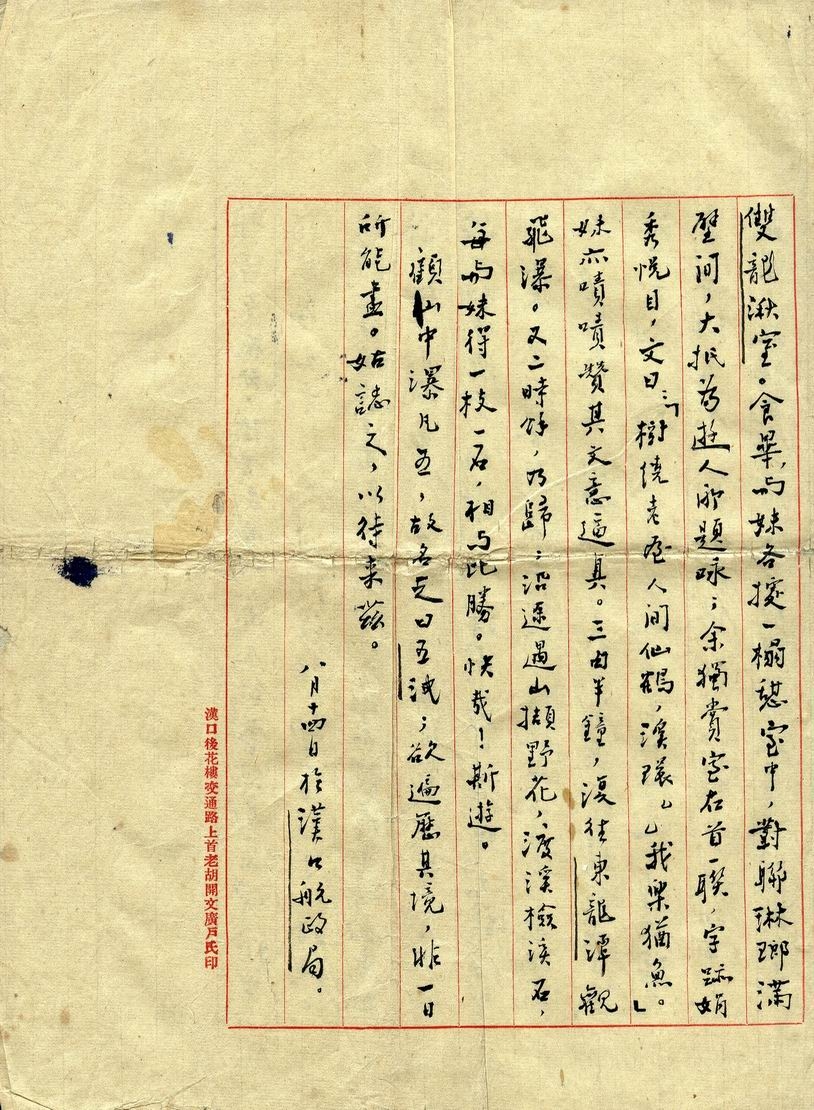 雙龍湫室。食畢，与妹各據一榻憇室中，對聯琳瑯滿
壁间，大抵為遊人所題咏；余獨賞室右首一聨，字跡娟
秀悦目，文曰：「樹繞老屋人间仙鶴，溪環我樂猶魚。」
妹亦嘖嘖贊其文意逼真。三句半鐘，復往東龍潭觀
飛瀑。又二時餘，乃歸；沿途遇山擷野花，渡溪檢溪石，
每与妹得一枝一石，相与比勝。快哉！斯遊。
顧山中瀑凡五，故名之曰五洩；欲遍歷其境，非一日
所能盡。姑誌之，以待来兹。
八月十四日於漢口航政局。
漢口後花樓交通路上首老胡開文廣戶氏印